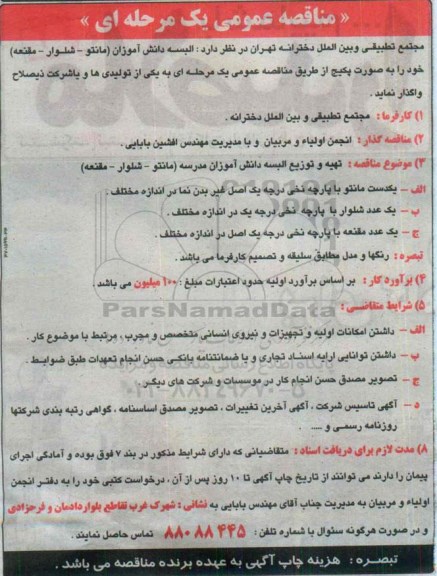 « مناقصه عمومی یک مرحله ای »
مجتمع تطبیقی وبین الملل دخترانه تهران در نظر دارد : البسه دانش آموزان (مانتو - شلوار - مقنعه)
خود را به صورت پکیج از طریق مناقصه عمومی یک مرحله ای به یکی از تولیدی ها و یاشرکت ذیصلاح
واگذار نماید .
۱) کارفرما : مجتمع تطبیقی و بین الملل دخترانه .
۲) مناقصه گذار : انجمن اولیاء و مربیان و با مدیریت مهندس افشین بابایی .
۳) موضوع مناقصه : تهیه و توزیع البسه دانش آموزان مدرسه (مانتو - شلوار - مقنعه)
الف - یکدست مانتو با پارچه نخی درجه یک اصل غیر بدن نما در اندازه مختلف .
ب - یک عدد شلوار با پارچه نخی درجه یک در اندازه مختلف .
ج - یک عدد مقنعه با پارچه نخی درجه یک اصل در اندازه مختلف .
تبصره : رنگها و مدل مطابق سلیقه و تصمیم کارفرما می باشد .
۴) برآورد کار : بر اساس برآورد اولیه حدود اعتبارات مبلغ : ۱۰۰ میلیون می باشد .
۵) شرایط متقاضی :
ParsNamadData
الف - داشتن امکانات اولیه و تجهیزات و نیروی انسانی متخصص و مجرب ، مرتبط با موضوع کار .
ب - داشتن توانایی ارایه اسناد تجاری و یا ضمانتنامه بانکی حسن انجام تعهدات طبق ضوابط .
پایگاه اطلاع رسانی مناقصه و مزایده
ج - تصویر مصدق حسن انجام کار در موسسات و شرکت های دیگر .
۰۲۱-۸۸۳۴۹۶۷۰-۵
د - آگهی تاسیس شرکت ، آگهی آخرین تغییرات ، تصویر مصدق اساسنامه ، گواهی رتبه بندی شرکتها
روزنامه رسمی و ......
۸) مدت لازم برای دریافت اسناد : متقاضیانی که دارای شرایط مذکور در بند ۷ فوق بوده و آمادگی اجرای
پیمان را دارند می توانند از تاریخ چاپ آگهی تا ۱۰ روز پس از آن ، درخواست کتبی خود را به دفتر انجمن
اولیاء و مربیان به مدیریت جناب آقای مهندس بابایی به نشانی : شهرک غرب تقاطع بلواردادمان و فرحزادی
و در صورت هرگونه سئوال با شماره تلفن : ۸۸۰۸۸۴۴۵ تماس حاصل نمایند .
تبصره : هزینه چاپ آگهی به عهده برنده مناقصه می باشد .